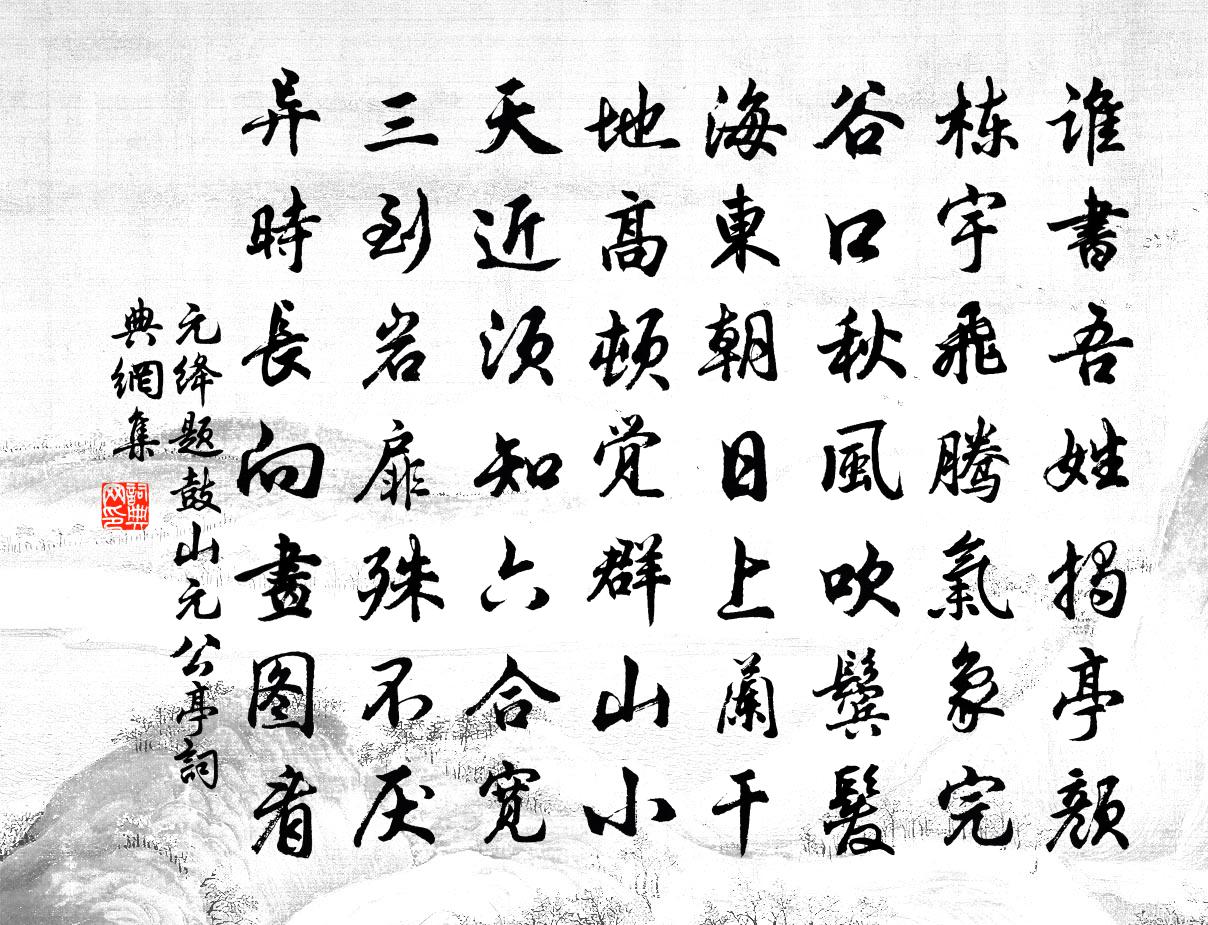 谁書吾姓揭亭颜
栋宇飛騰氣象完
谷口秋風吹鬓髪
海東朝日上蘭干
地髙頓觉群山小
天近须知六合宽
三到岩扉殊不厌
异時長向畫图看
元绛题鼓山元公亭詞
典網集
詞典
网印